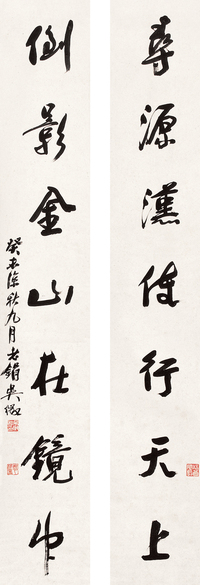 尋源漢使行天上
倒影金山在鏡中
癸未深秋九月老鋗吳徵